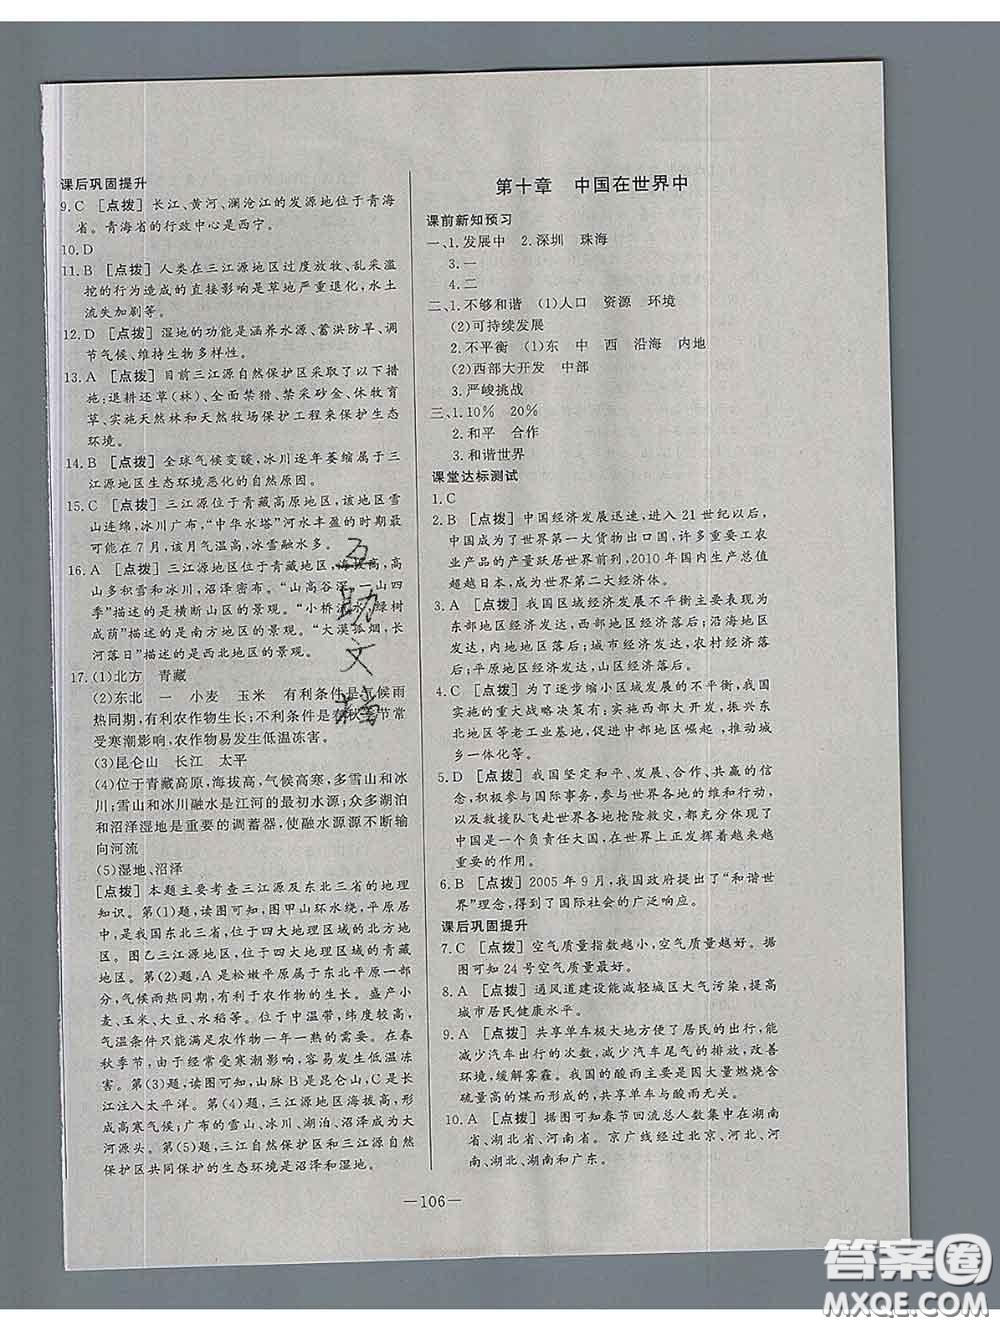 课后巩固提升
9.C [点拨] 长江、黄河、澜沧江的发源地位于青海
省。青海省的行政中心是西宁。
10.D
11.B [点拨] 人类在三江源地区过度放牧、乱采滥
挖的行为造成的直接影响是草地严重退化,水土
流失加剧等。
12.D [点拨] 湿地的功能是涵养水源、蓄洪防旱、调
节气候、维持生物多样性。
13.A [点拨] 目前三江源自然保护区采取了以下措
施:退耕还草(林)、全面禁猎、禁采砂金、休牧育
草、实施天然林和天然牧场保护工程来保护生态
环境。
14.B [点拨] 全球气候变暖,冰川逐年萎缩属于三
江源地区生态环境恶化的自然原因。
15.C [点拨] 三江源位于青藏高原地区,该地区雪
山连绵,冰川广布,“中华水塔”河水丰盈的时期最
可能在7月,该月气温高,冰雪融水多。
16.A [点拨] 三江源地区位于青藏地区,海拔高,高
山多积雪和冰川,沼泽密布。“山高谷深,一山四
季”描述的是横断山区的景观。“小桥流水,绿树
成荫”描述的是南方地区的景观。“大漠孤烟,长
河落日”描述的是西北地区的景观。
17.(1)北方 青藏
(2)东北 一 小麦 玉米 有利条件是气候雨
热同期,有利农作物生长;不利条件是春秋季节常
受寒潮影响,农作物易发生低温冻害。
(3)昆仑山 长江 太平
(4)位于青藏高原,海拔高,气候高寒,多雪山和冰
川;雪山和冰川融水是江河的最初水源;众多湖泊
和沼泽湿地是重要的调蓄器,使融水源源不断输
向河流
(5)湿地、沼泽
[点拨] 本题主要考查三江源及东北三省的地理
知识。第(1)题,读图可知,图甲山环水绕,平原居
中,是我国东北三省,位于四大地理区域的北方地
区。图乙三江源为青藏,位于四大地理区域的青藏
地区。第(2)题,A是松嫩平原属于东北平原一部
分,气候雨热同期,有利于农作物的生长。盛产小
麦、玉米、大豆、水稻等。位于中温带,纬度较高,
气温条件只能满足农作物一年一熟的需要。在春
秋季节,由于经常受寒潮影响,容易发生低温冻
害。第(3)题,读图可知,山脉B是昆仑山,C是长
江注入太平洋。第(4)题,三江源地区海拔高,
形成高寒气候;广布的雪山、冰川、湖泊和沼泽是
大河源头。第(5)题,三江自然保护区和三江源自然
保护区共同保护的生态环境是沼泽和湿地。
第十章 中国在世界中
课前新知预习
一、1.发展中 2.深圳 珠海
3.一
4.二
二、1.不够和谐 (1)人口 资源 环境
(2)可持续发展
2.不平衡 (1)东 中 西 沿海 内地
(2)西部大开发 中部
3.严峻挑战
三、1.10% 20%
2.和平 合作
3.和谐世界
课堂达标测试
1.C
2.B [点拨] 中国经济发展迅速,进入21世纪以后,
中国成为了世界第一大货物出口国,许多重要工农
业产品的产量跃居世界前列,2010年国内生产总值
超越日本,成为世界第二大经济体。
3.A [点拨] 我国区域经济发展不平衡主要表现为:
东部地区经济发达,西部地区经济落后;沿海地区
发达,内地地区落后;城市经济发达,农村经济落
后;平原地区经济发达,山区经济落后。
4.C [点拨] 为了逐步缩小区域发展的不平衡,我国
实施的重大战略决策有:实施西部大开发,振兴东
北地区等老工业基地,促进中部崛起,推动城
乡一体化等。
5.D [点拨] 我国坚定和平、发展、合作、共赢的信
念,积极参与国际事务,参与世界各地的维和行动,
以及救援队飞赴世界各地抢险救灾,都充分体现了
中国是一个负责任大国,在世界上正发挥着越来越
重要的作用。
6.B [点拨] 2005年9月,我国政府提出了“和谐世
界”理念,得到了国际社会的广泛响应。
课后巩固提升
7.C [点拨] 空气质量指数越小,空气质量越好。据
图可知24号空气质量最好。
8.A [点拨] 通风道建设能减轻城区大气污染,提高
城市居民健康水平。
9.A [点拨] 共享单车极大地方便了居民的出行,能
减少汽车出行的次数,减少汽车尾气的排放,改善
环境,缓解雾霾。我国的酸雨主要是因大量燃烧含
硫量高的煤而形成的,共享单车与酸雨无关。
10.A [点拨] 据图可知春节回流总人数集中在湖南
省、湖北省、河南省。京广线经过北京、河北、河
南、湖北、湖南和广东。
互助文档
—106—
答案圈
MXQE.COM